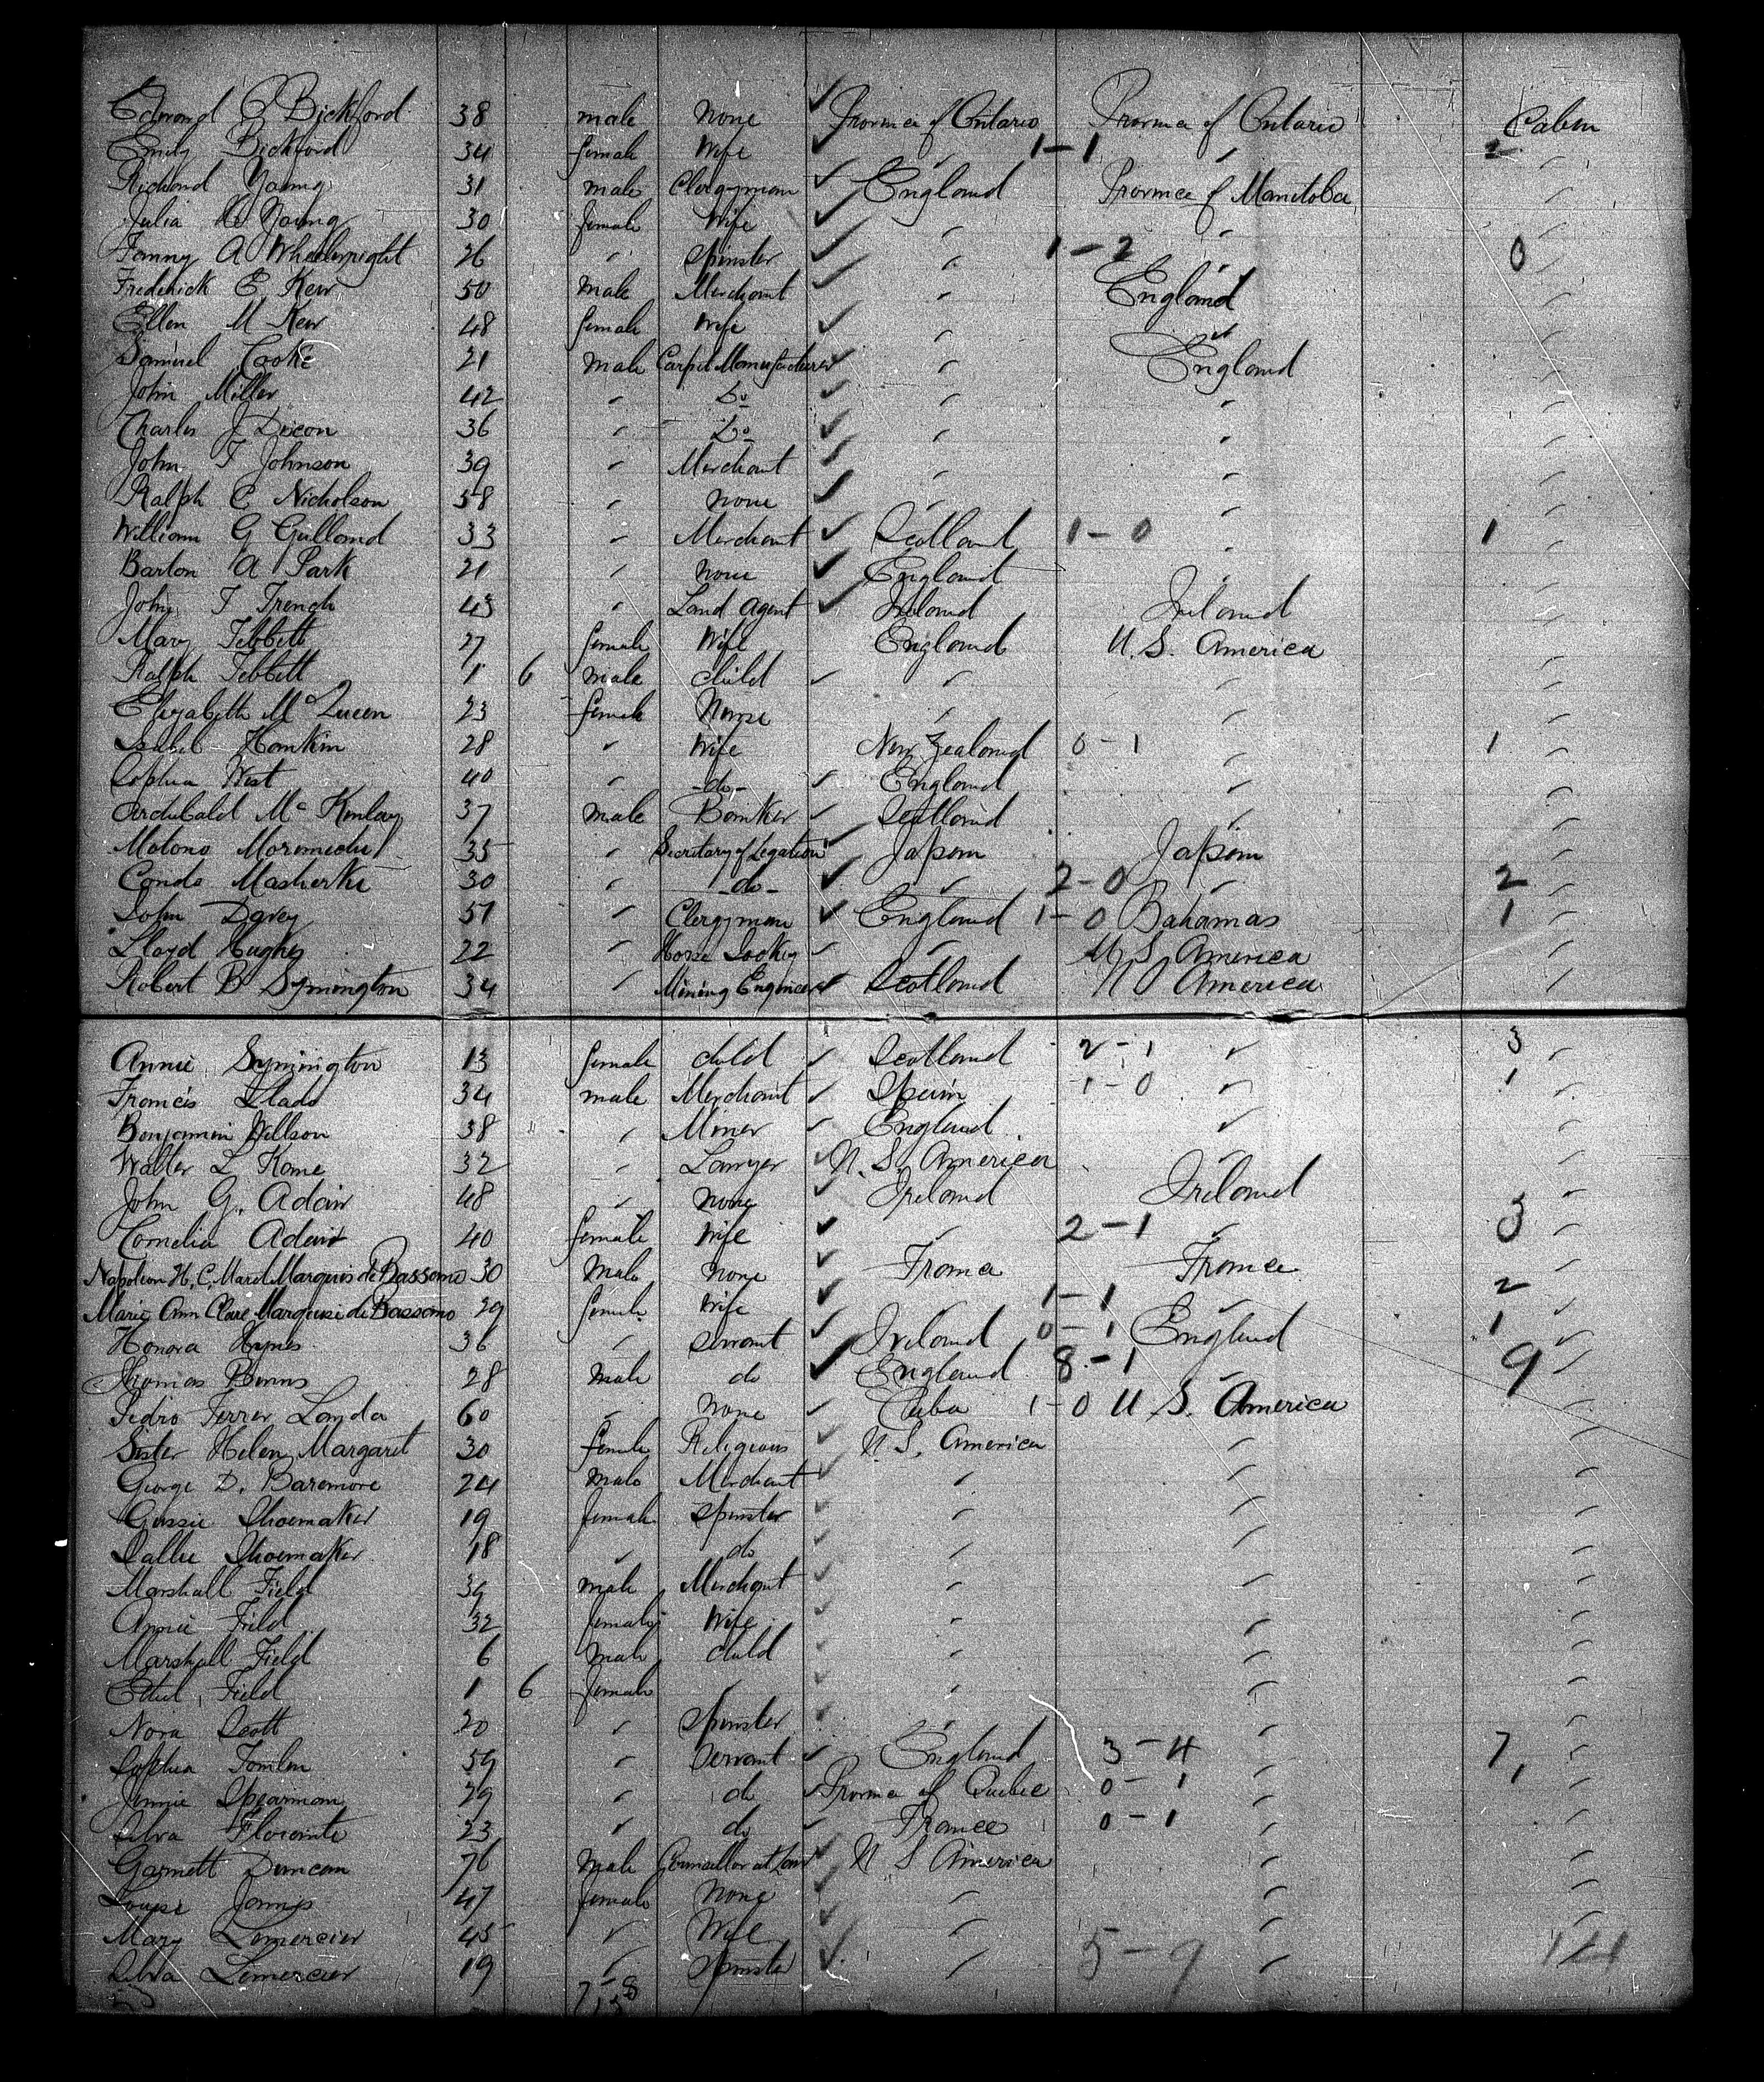 Edmond C Bickford 38 male None ✓ Province of Ontario Province of Ontario Cabin
Emily Bickford 34 female Wife ✓ " 1-1 " 2 "
Richard Young 31 male Clergyman ✓ England Province of Manitoba "
Julia Young 30 female Wife ✓ " " "
Fanny A Wheelwright 26 " Spinster ✓ " 1-2 " 0 "
Frederick E Kew 50 male Merchant ✓ " England "
Ellen M Kew 48 female Wife ✓ " " "
Samuel Cooke 21 Male Carpet Manufacturer ✓ " England "
John Miller 42 " Do ✓ " " "
Charles J Dixon 36 " Do ✓ " " "
John T Johnson 39 " Merchant ✓ " " "
Ralph C Nicholson 58 " None ✓ " " "
William G Gulland 33 " Merchant ✓ Scotland 1-0 " 1 "
Barton A Park 21 " None ✓ England " "
John T Trench 43 " Land Agent ✓ Ireland Ireland "
Mary Tebbett 27 female Wife England U.S. America "
Ralph Tebbett 1 6 male child ✓ " " "
Elizabeth McQueen 23 female Nurse " " "
Isabel Hankin 28 " Wife New Zealand 0-1 " 1 "
Sophia West 40 " -do- ✓ England " "
Archibald McKinlay 37 male Banker ✓ Scotland " "
Motono 35 " Secretary of Legation ✓ Japan Japan "
Condo 30 " -do- ✓ " 2-0 " 2 "
John Davey 51 " Clergyman ✓ England 1-0 Bahamas 1 "
Lloyd Hughes 22 " Horse Jockey ✓ " U S America "
Robert B Symington 34 " Mining Engineer ✓ Scotland U S America "
Annie Symington 13 female child ✓ Scotland 2-1 " 3 "
Francis Llado 34 male Merchant ✓ Spain 1-0 " 1 "
Benjamin Willson 38 " Miner ✓ England " "
Walter L Kane 32 " Lawyer ✓ U.S. America " "
John G. Adair 48 " None ✓ Ireland Ireland "
Cornelia Adair 40 female Wife ✓ " 2-1 " 3 "
Napoleon H. C. Maret Marquis de Bassano 30 Male None ✓ France France "
Marie Ann Clare Marquise de Bassano 29 female Wife ✓ " 1-1 " 2 "
Honora Hynes 36 " Servant ✓ Ireland 0-1 England 1 "
Thomas Burns 28 Male do ✓ England 8-1 " 9 "
Pedro Ferrer Landa 60 " None ✓ Cuba 1-0 U.S. America "
Sister Helen Margaret 30 female Religious ✓ U S. America " "
George D. Baremore 24 Male Merchant ✓ " " "
Gussie Shoemaker 19 female Spinster ✓ " " "
Sallie Shoemaker 18 " do ✓ " " "
Marshall Field 39 male Merchant ✓ " " "
Annie Field 32 female Wife ✓ " " "
Marshall Field 6 Male child ✓ " " "
Ethel Field 1 6 female " ✓ " " "
Nora Scott 20 " Spinster ✓ " " "
Sophia Tomlin 59 " Servant ✓ England 3-4 " 7 "
Jennie Spearman 29 " do ✓ Province of Quebec 0-1 " 1 "
Silva 23 " do ✓ France 0-1 " "
Garnett Duncan 76 Male Councillor at Law ✓ U S America " "
Louise 47 female None ✓ " " "
Mary Lemercier 45 " Wife ✓ " " "
Silva Lemercier 19 " Spinster ✓ " 5-9 " 14